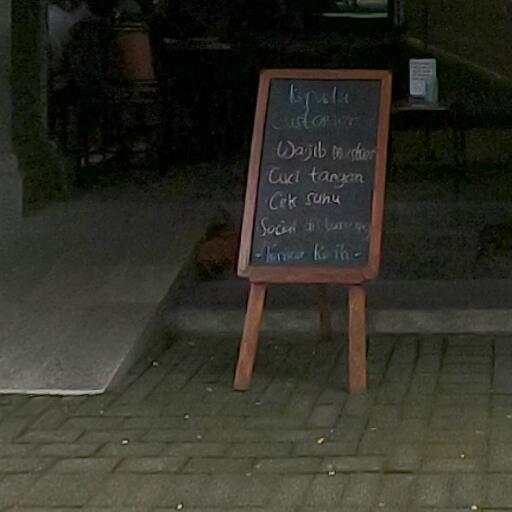 kpada
Customer
Wajib masker
Cuci tangan
Cek suhu
Social distancing
- Terima Kasih -